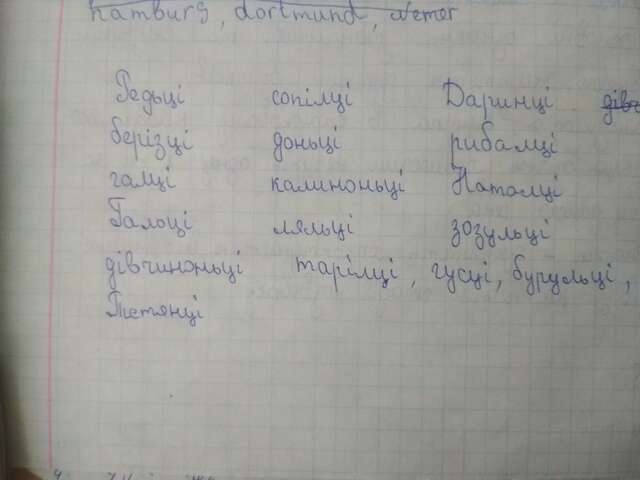 hamburg, dortmund, Wetter
Федьці сопілці Даринці дівч
берізці доньці рибалці
галці калиноньці Наталці
Галоці ляльці зозульці
дівчиноньці тарілці, гусці, бурульці,
Тетянці